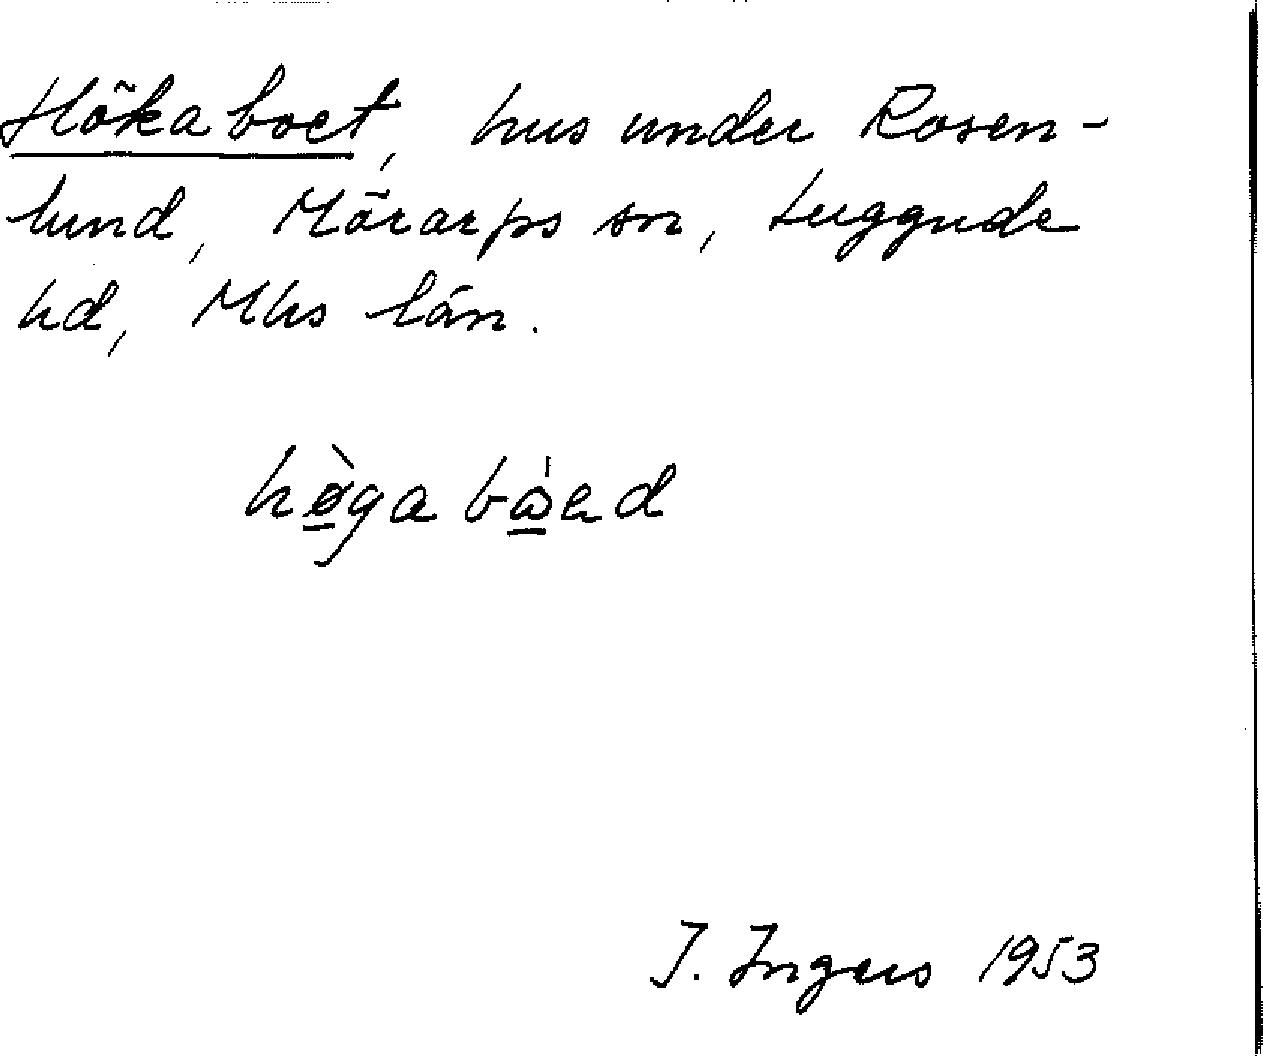 Hökaboet, hus under Rosen-
lund, Mörarps sn, Luggude
hd, Mhs län.
hø̀gabɷ́ed
I. Ingers 1953